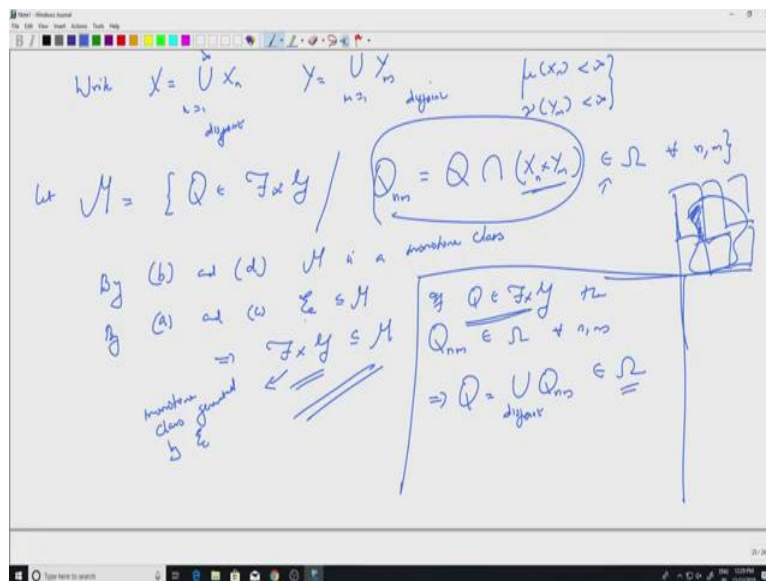 Note1 - Windows Journal
File Edit View Insert Actions Tools Help
Write X = ∪ Xₙ Y = ∪ Yₘ μ(Xₙ) < ∞ }
n=1 disjoint m=1 disjoint ν(Yₘ) < ∞ }
let M = { Q ∈ F×G / Qₙₘ = Q ∩ (Xₙ×Yₘ) ∈ Ω ∀ n,m }
By (b) and (d) M is a monotone class
By (a) and (c) ℰ ⊆ M
⇒ F×G ⊆ M
monotone
class generated
by ℰ
If Q ∈ F×G then
Qₙₘ ∈ Ω ∀ n,m
⇒ Q = ∪ Qₙₘ ∈ Ω
disjoint
Type here to search